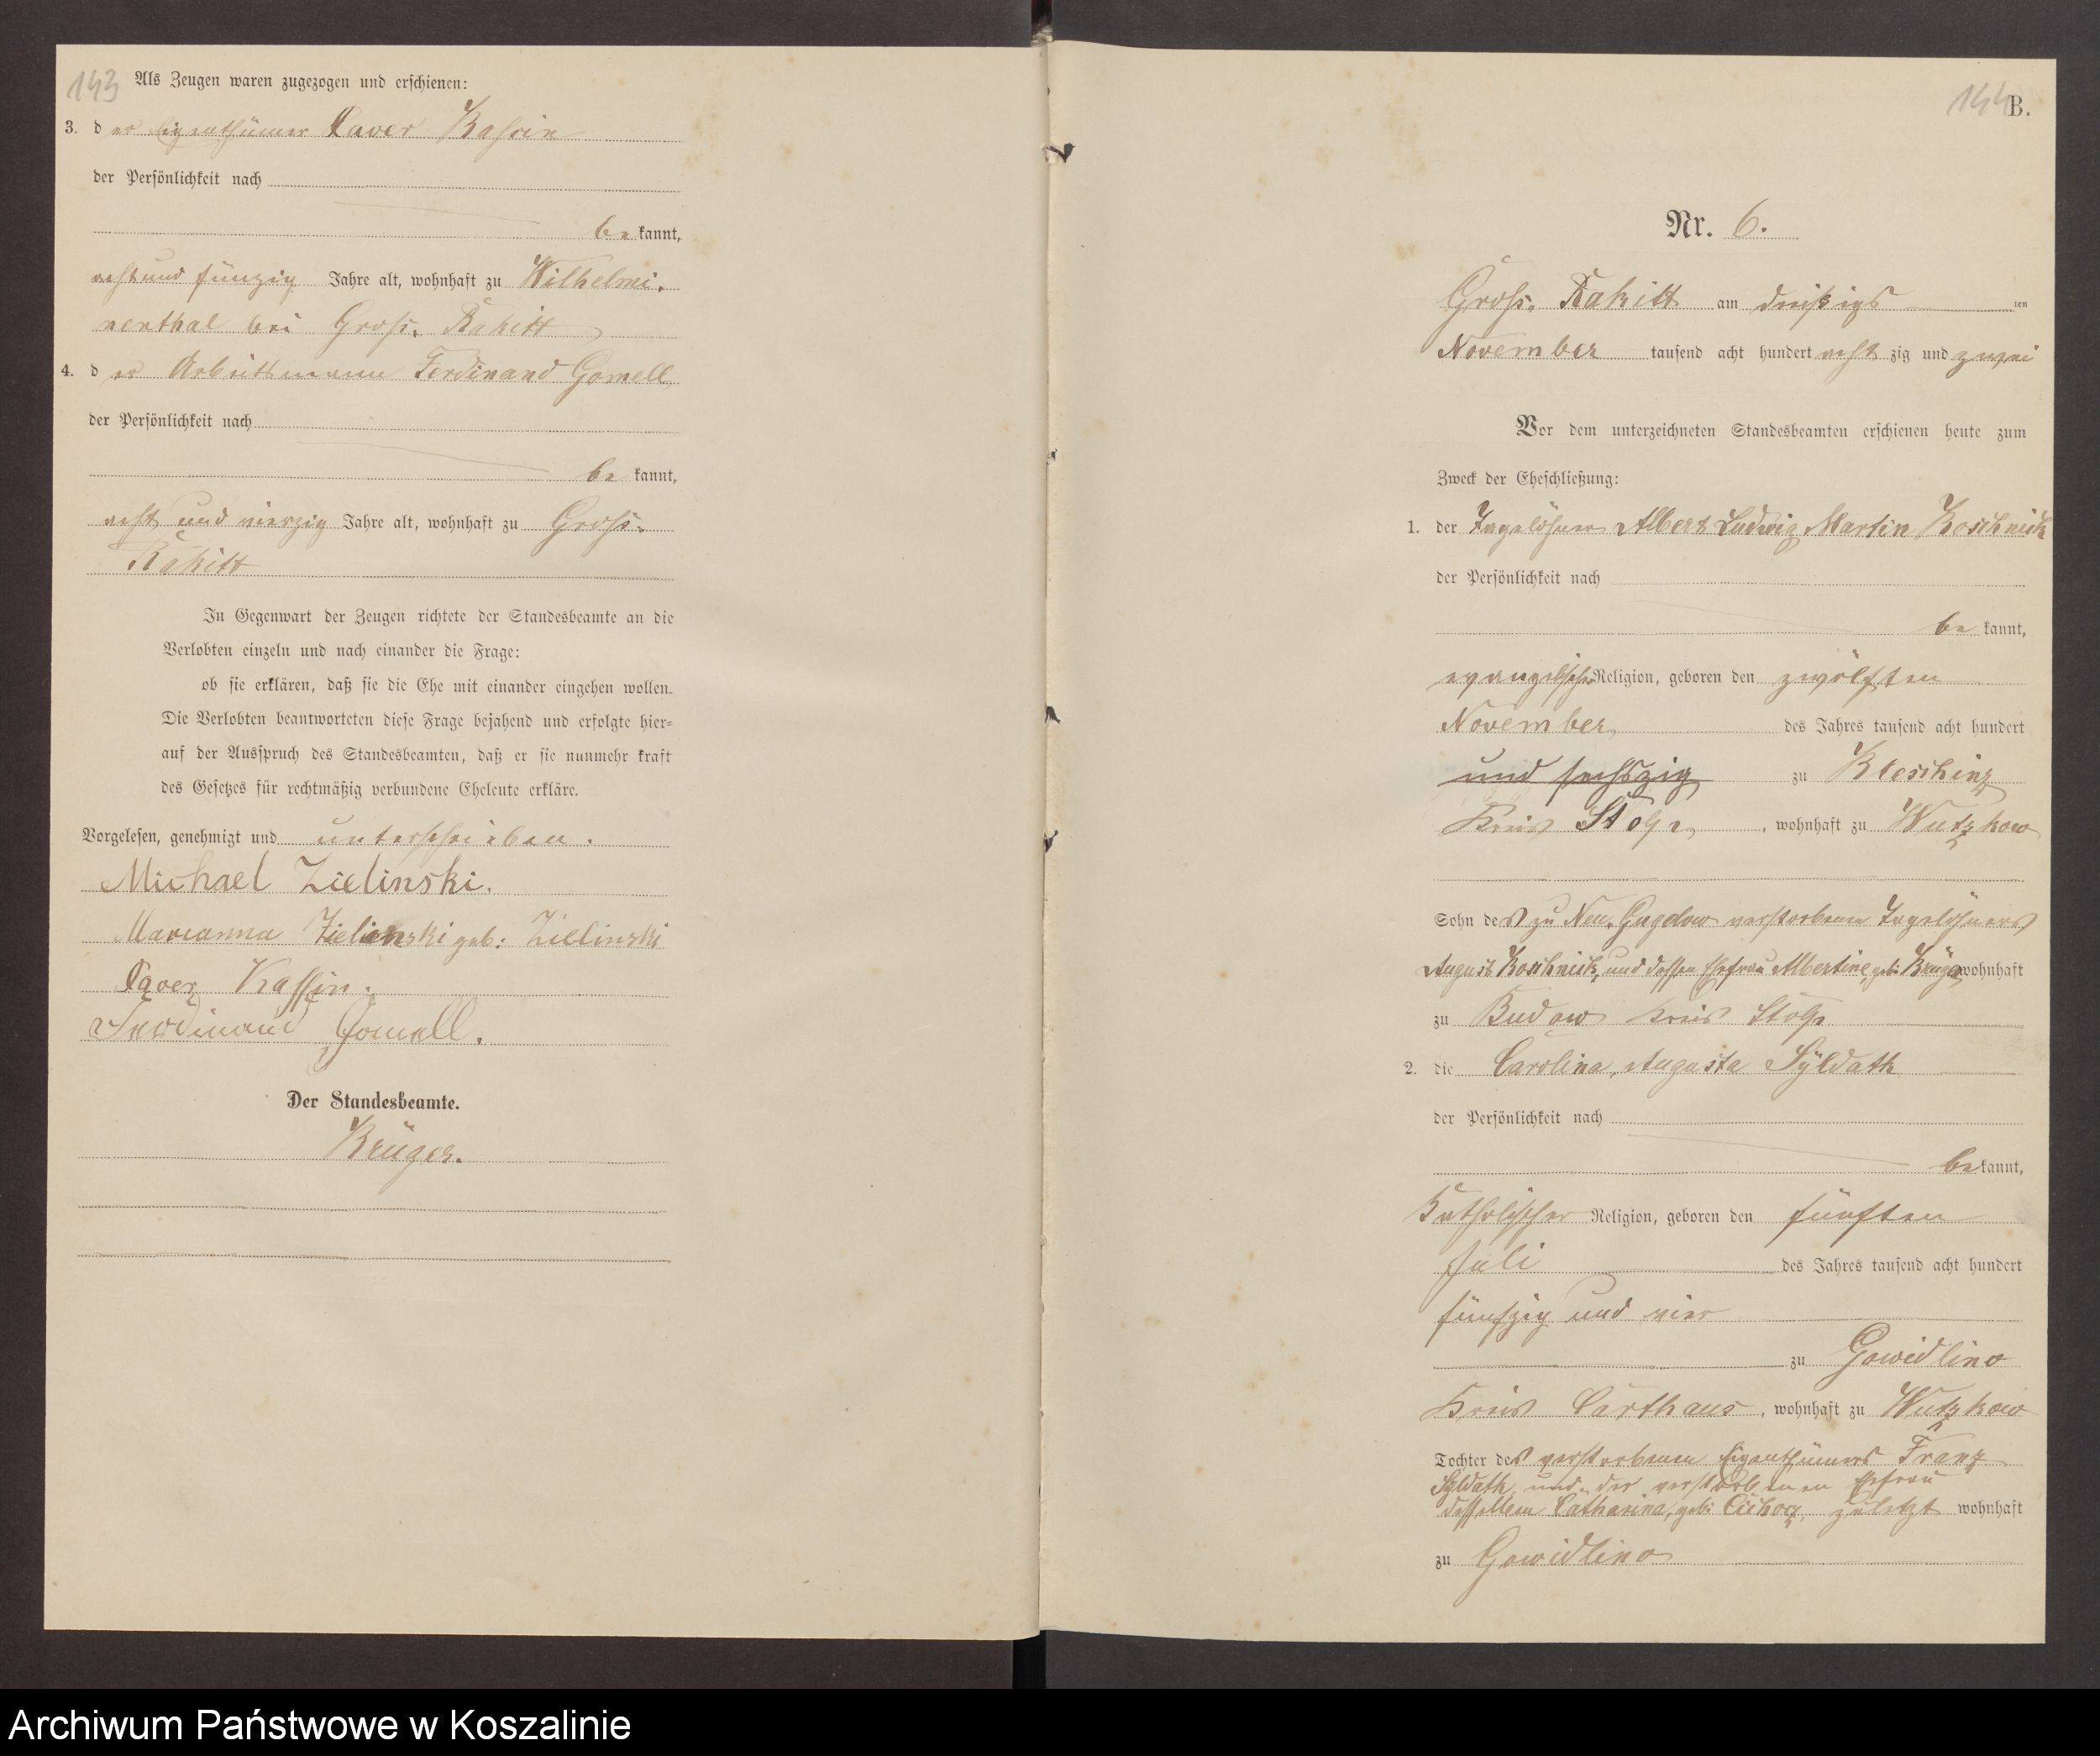 143
Als Zeugen waren zugezogen und erschienen:
3. der Eigenthümer Xaver Kassin
der Persönlichkeit nach
be kannt,
acht und fünzig Jahre alt, wohnhaft zu Wilhelmi-
nenthal bei Groß-Rakitt
4. der Arbeitsmann Ferdinand Gomell
der Persönlichkeit nach
be kannt,
acht und vierzig Jahre alt, wohnhaft zu Groß-
Rakitt
In Gegenwart der Zeugen richtete der Standesbeamte an die
Verlobten einzeln und nach einander die Frage:
ob sie erklären, daß sie die Ehe mit einander eingehen wollen.
Die Verlobten beantworteten diese Frage bejahend und erfolgte hier-
auf der Ausspruch des Standesbeamten, daß er sie nunmehr kraft
des Gesetzes für rechtmäßig verbundene Eheleute erkläre.
Vorgelesen, genehmigt und unterschrieben.
Michael Zielinski.
Marianna Zielinski geb: Zielinski
Xaver Kassin.
Ferdinand Gomell.
Der Standesbeamte.
Krüger.
144
B.
Nr. 6.
Groß-Rakitt am dreißigs ten
November tausend acht hundert acht zig und zwei
Vor dem unterzeichneten Standesbeamten erschienen heute zum
Zweck der Eheschließung:
1. der Tagelöhner Albert Ludwig Martin Koschnick
der Persönlichkeit nach
be kannt,
evangelischer Religion, geboren den zwölften
November des Jahres tausend acht hundert
und sechszig zu Kleschinz
Kreis Stolp, wohnhaft zu Wutzkow
Sohn des zu Neu-Gugelow verstorbenen Tagelöhners
August Koschnick, und dessen Ehefrau Albertine, geb: Krüger wohnhaft
zu Budow Kreis Stolp
2. die Carolina, Augusta Syldath
der Persönlichkeit nach
be kannt,
Katholischer Religion, geboren den fünften
Juli des Jahres tausend acht hundert
fünfzig und vier
zu Gowidlino
Kreis Carthaus, wohnhaft zu Wutzkow
Tochter des verstorbenen Eigenthümers Franz
Syldath, und der verstorbenen Ehefrau
desselben Catharina, geb: zuletzt wohnhaft
zu Gowidlino
Archiwum Państwowe w Koszalinie